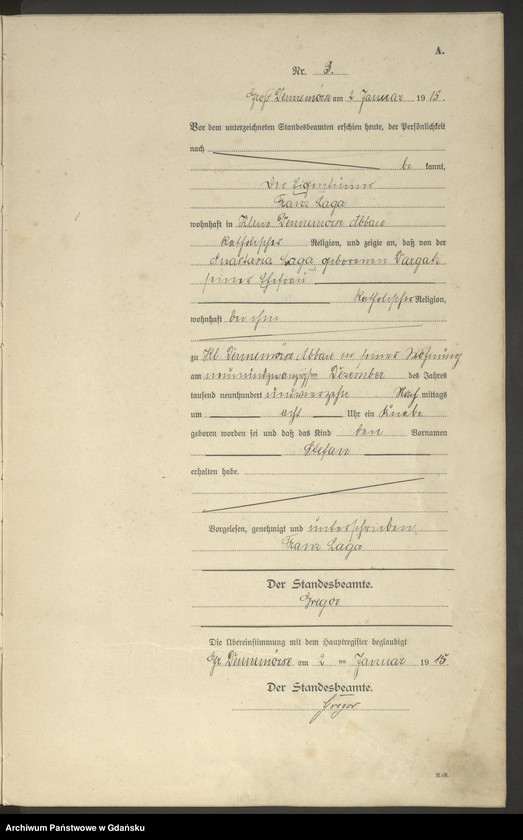 A.
Nr. 3.
Groß Dennemörse am 2 Januar 1915.
Vor dem unterzeichneten Standesbeamten erschien heute, der Persönlichkeit
nach
be kannt,
Der Eigentümer
Franz Laga
wohnhaft in Klein Dennemörse Abbau
katholischer Religion, und zeigte an, daß von der
Anastasia Laga geborenen
seiner Ehefrau
katholischer Religion,
wohnhaft bei ihm
zu Kl Dennemörse Abbau in seiner Wohnung
am neunundzwanzigsten Dezember des Jahres
tausend neunhundert undvierzehn Nach mittags
um acht Uhr ein Knabe
geboren worden sei und daß das Kind den Vornamen
Stefan
erhalten habe.
Vorgelesen, genehmigt und unterschrieben
Franz Laga
Der Standesbeamte.
Gregor
Die Übereinstimmung mit dem Hauptregister beglaubigt
Gr Dennemörse am 2 ten Januar 1915.
Der Standesbeamte.
Gregor
Archiwum Państwowe w Gdańsku